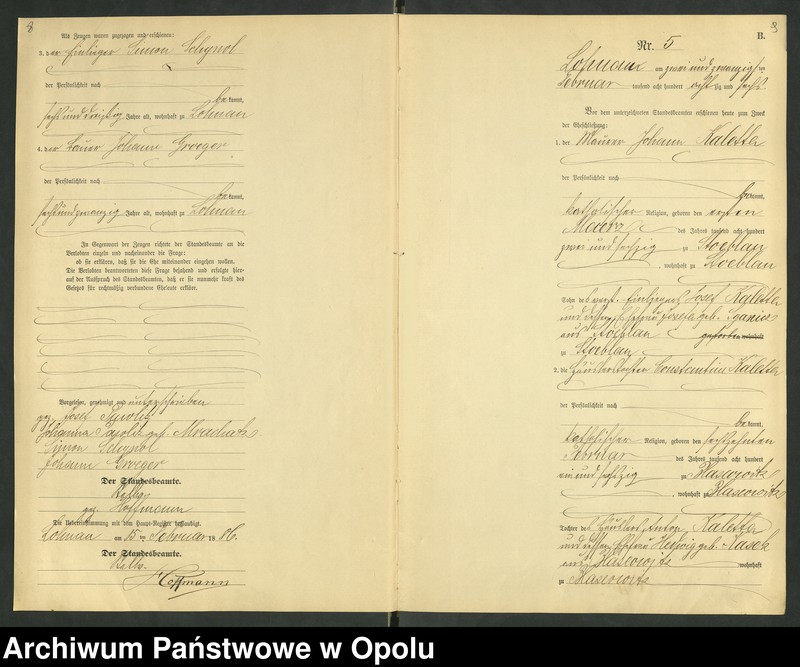 8
Als Zeugen waren zugezogen und erschienen:
3. der Einlieger Simon Schynol
der Persönlichkeit nach
bekannt,
sechsunddreißig Jahre alt, wohnhaft zu Lohnau
4. der Bauer Johann Groeger
der Persönlichkeit nach
bekannt,
sechsundzwanzig Jahre alt, wohnhaft zu Lohnau
In Gegenwart der Zeugen richtete der Standesbeamte an die
Verlobten einzeln und nacheinander die Frage:
ob sie erklären, daß sie die Ehe miteinander eingehen wollen.
Die Verlobten beantworteten diese Frage bejahend und erfolgte hier-
auf der Ausspruch des Standesbeamten, daß er sie nunmehr kraft des
Gesetzes für rechtmäßig verbundene Eheleute erkläre.
Vorgelesen, genehmigt und unterschrieben
gez. Josef
Johanna geb. Mrachatz
Simon Schynol
Johann Groeger
Der Standesbeamte.
gez. Hoffmann
Die Uebereinstimmung mit dem Haupt-Register beglaubigt.
Lohnau am 15 ten Februar 1886.
Der Standesbeamte.
Hoffmann
9
B.
Nr. 5
Lohnau am zwei und zwanzig ten
Februar tausend acht hundert achtzig und sechs
Vor dem unterzeichneten Standesbeamten erschienen heute zum Zweck
der Eheschließung:
1. der Maurer Johann Kaletta
der Persönlichkeit nach
bekannt,
katholischer Religion, geboren den ersten
Maerz des Jahres tausend acht hundert
zwei und sechzig zu Stoeblau
, wohnhaft zu Stoeblau
Sohn des Einliegers Josef Kaletta
und dessen Ehefrau Josefa geb.
aus Stoeblau wohnhaft
zu Stoeblau
2. die Häuslertochter Constantine Kaletta
der Persönlichkeit nach
bekannt,
katholischer Religion, geboren den sechszehnten
Februar des Jahres tausend acht hundert
ein und sechzig zu Blaseowitz
, wohnhaft zu Blaseowitz
Tochter des Häuslers Anton Kaletta
und dessen Ehefrau Hedwig geb. Kasek
aus Blaseowitz wohnhaft
zu Blaseowitz
Archiwum Państwowe w Opolu